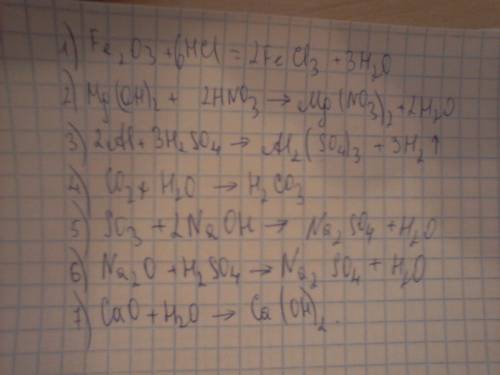 1) Fe₂O₃ + 6HCl = 2FeCl₃ + 3H₂O
2) Mg(OH)₂ + 2HNO₃ → Mg(NO₃)₂ + 2H₂O
3) 2Al + 3H₂SO₄ → Al₂(SO₄)₃ + 3H₂↑
4) CO₂ + H₂O → H₂CO₃
5) SO₃ + 2NaOH → Na₂SO₄ + H₂O
6) Na₂O + H₂SO₄ → Na₂SO₄ + H₂O
7) CaO + H₂O → Ca(OH)₂.